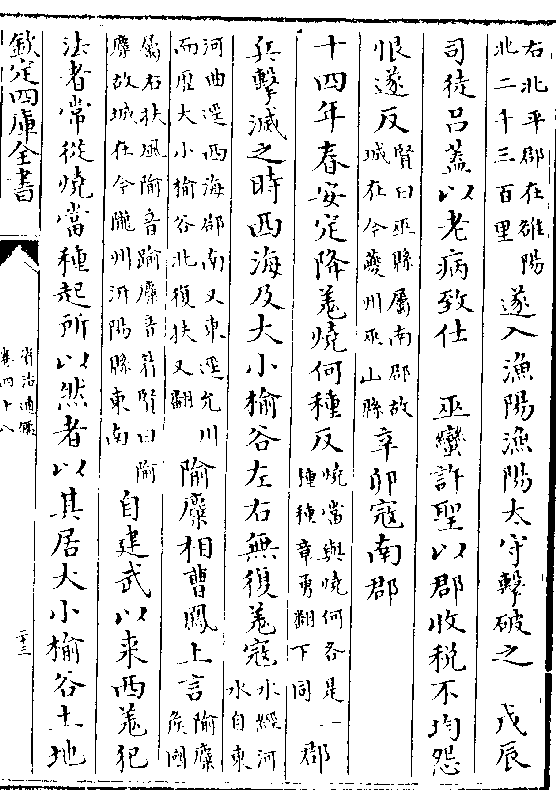 右北平郡在雒陽
北二千三百里
遂入漁陽漁陽太守擊破之　戊辰
司徒吕蓋以老病致仕　巫蠻許聖以郡收稅不均怨
恨遂反
賢曰巫縣屬南郡故
城在今夔州巫山縣
辛卯寇南郡
十四年春安定降羌燒何種反
燒當與燒何各是一
種種章勇翻下同
郡
兵擊滅之時西海及大小榆谷左右無復羌寇
水經河
水自東
河曲逕西海郡南又東逕允川
而歷大小榆谷北復扶又翻
隃麋相曹鳳上言
隃麋
侯國
屬右扶風隃音踰麋音眉賢曰隃
麋故城在今隴州汧陽縣東南
自建武以來西羌犯
法者常從燒當種起所以然者以其居大小榆谷土地
欽定四庫全書
資治通鑑
卷四十八
二十三